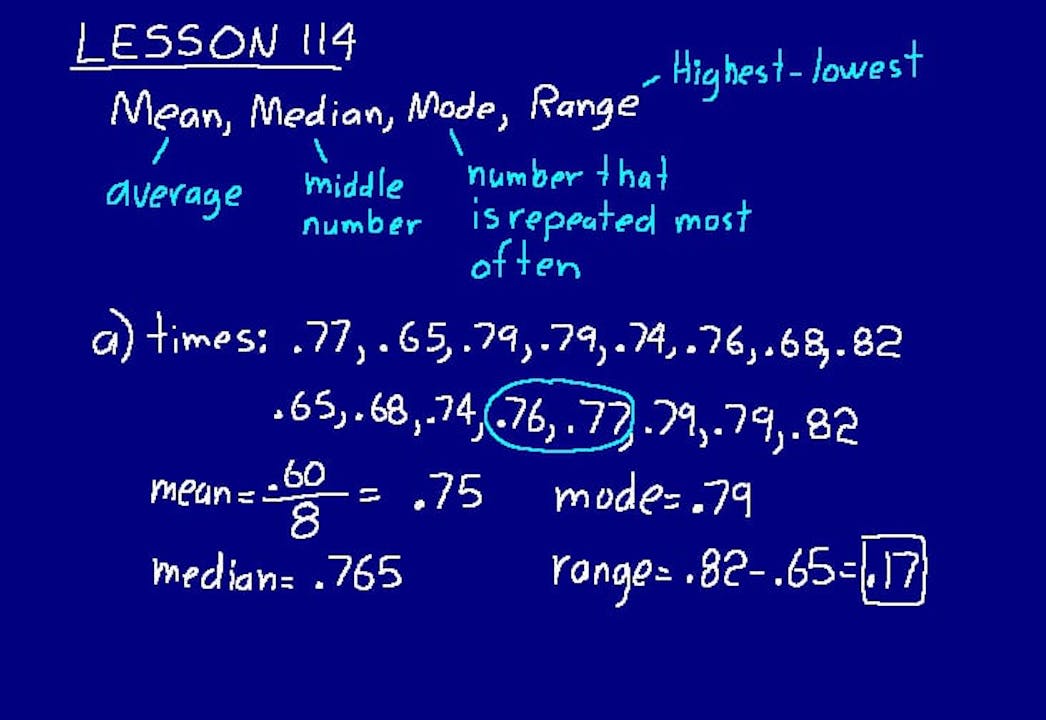 LESSON 114
Highest-lowest
Mean, Median, Mode, Range
average
middle
number
number that
is repeated most
often
a) times: .77, .65, .79, .79, .74, .76, .68, .82
.65, .68, .74, .76, .77, .79, .79, .82
mean = .60/8 = .75
mode = .79
median = .765
range = .82 - .65 = .17